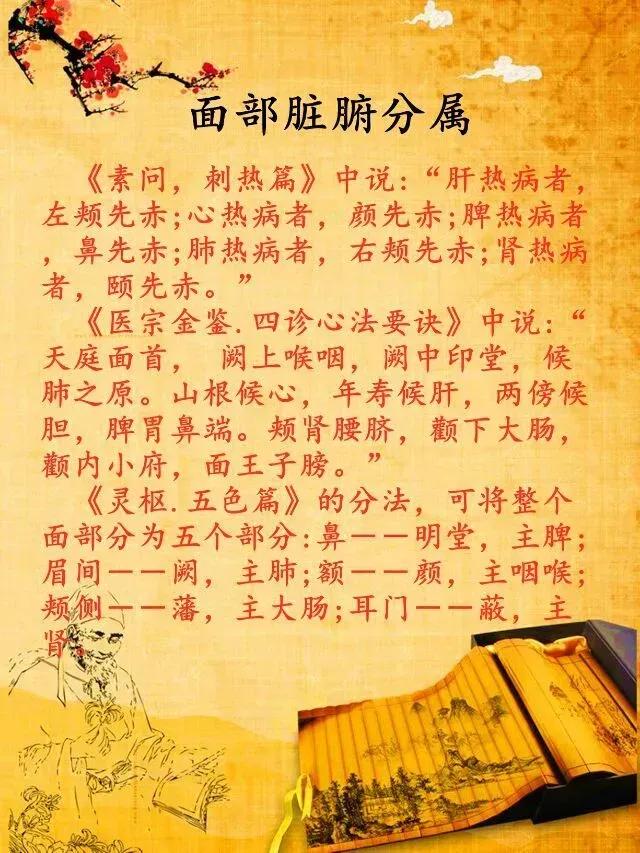 面部脏腑分属
《素问，刺热篇》中说:“肝热病者，
左颊先赤;心热病者，颜先赤;脾热病者
，鼻先赤;肺热病者，右颊先赤;肾热病
者，颐先赤。”
《医宗金鉴.四诊心法要诀》中说:“
天庭面首， 阙上喉咽，阙中印堂，候
肺之原。山根候心，年寿候肝，两傍候
胆，脾胃鼻端。颊肾腰脐，颧下大肠，
颧内小府，面王子膀。”
《灵枢.五色篇》的分法，可将整个
面部分为五个部分:鼻——明堂，主脾;
眉间——阙，主肺;额——颜，主咽喉;
颊侧——藩，主大肠;耳门——蔽，主
肾。